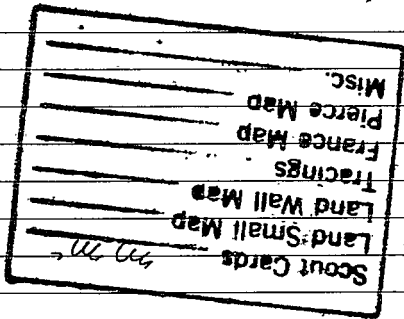 Scout Cards
Land Small Map
Land Wall Map
Tracings
France Map
Pierce Map
Misc.